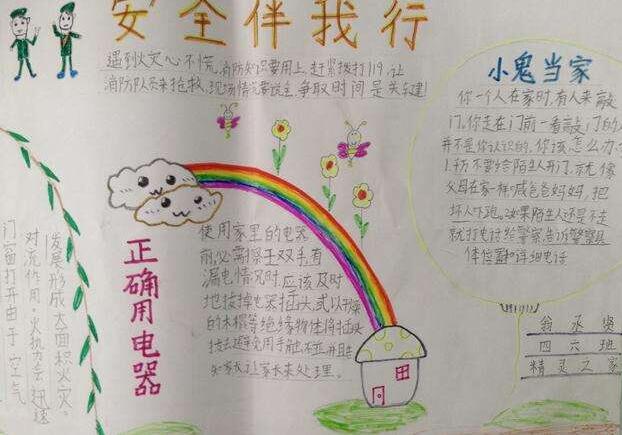 安全伴我行
遇到火灾心不慌,消防知识要用上,赶紧拨打119,让
消防队员来抢救,现场情况要说全,争取时间是关键!
小鬼当家
你一个人在家时,有人来敲
门。你走在门前一看敲门的人
并不是你认识的,你该怎么办?
1.千万不要给陌生人开门,就像
父母在家一样喊爸爸妈妈,把
坏人吓跑。如果陌生人还是不走
就打电话给警察,告诉警察具
体位置和详细电话
正确用电器
使用家里的电器
前,必需擦干双手,有
漏电情况时,应该及时
地拔掉电器插头,或以干燥
的木棍等绝缘物体将插头
拨去,避免用手触
知家长,让家长来处理。
门窗打开由于空气
对流作用,火势会迅速
发展形成大面积火灾。
四六班
精灵之家